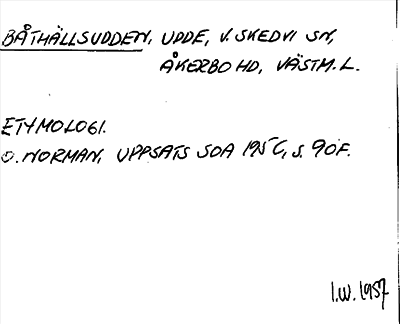 BÅTHÄLLSUDDEN, UDDE, V. SKEDVI SN,
ÅKERBO HD, VÄSTM. L.
ETYMOLOGI.
O. NORMAN, UPPSATS SOA 195C, S. 90F.
I.W. 1957